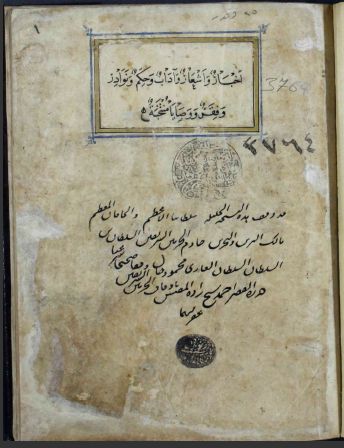 ١
أخبار وأشعار وآداب وحكم ونوادر
3764
وفقر ووصايا منتخبة
٣٧٦٤
قد وقف هذه النسخة الجليلة سلطاننا الأعظم والخاقان المعظم
مالك البرين والبحرين خادم الحرمين الشريفين السلطان بن
السلطان السلطان الغازي محمود خان وقفا صحيحا شرعيا
حرره الفقير احمد شيخ زاده المفتش باوقاف الحرمين الشريفين
غفر لهما